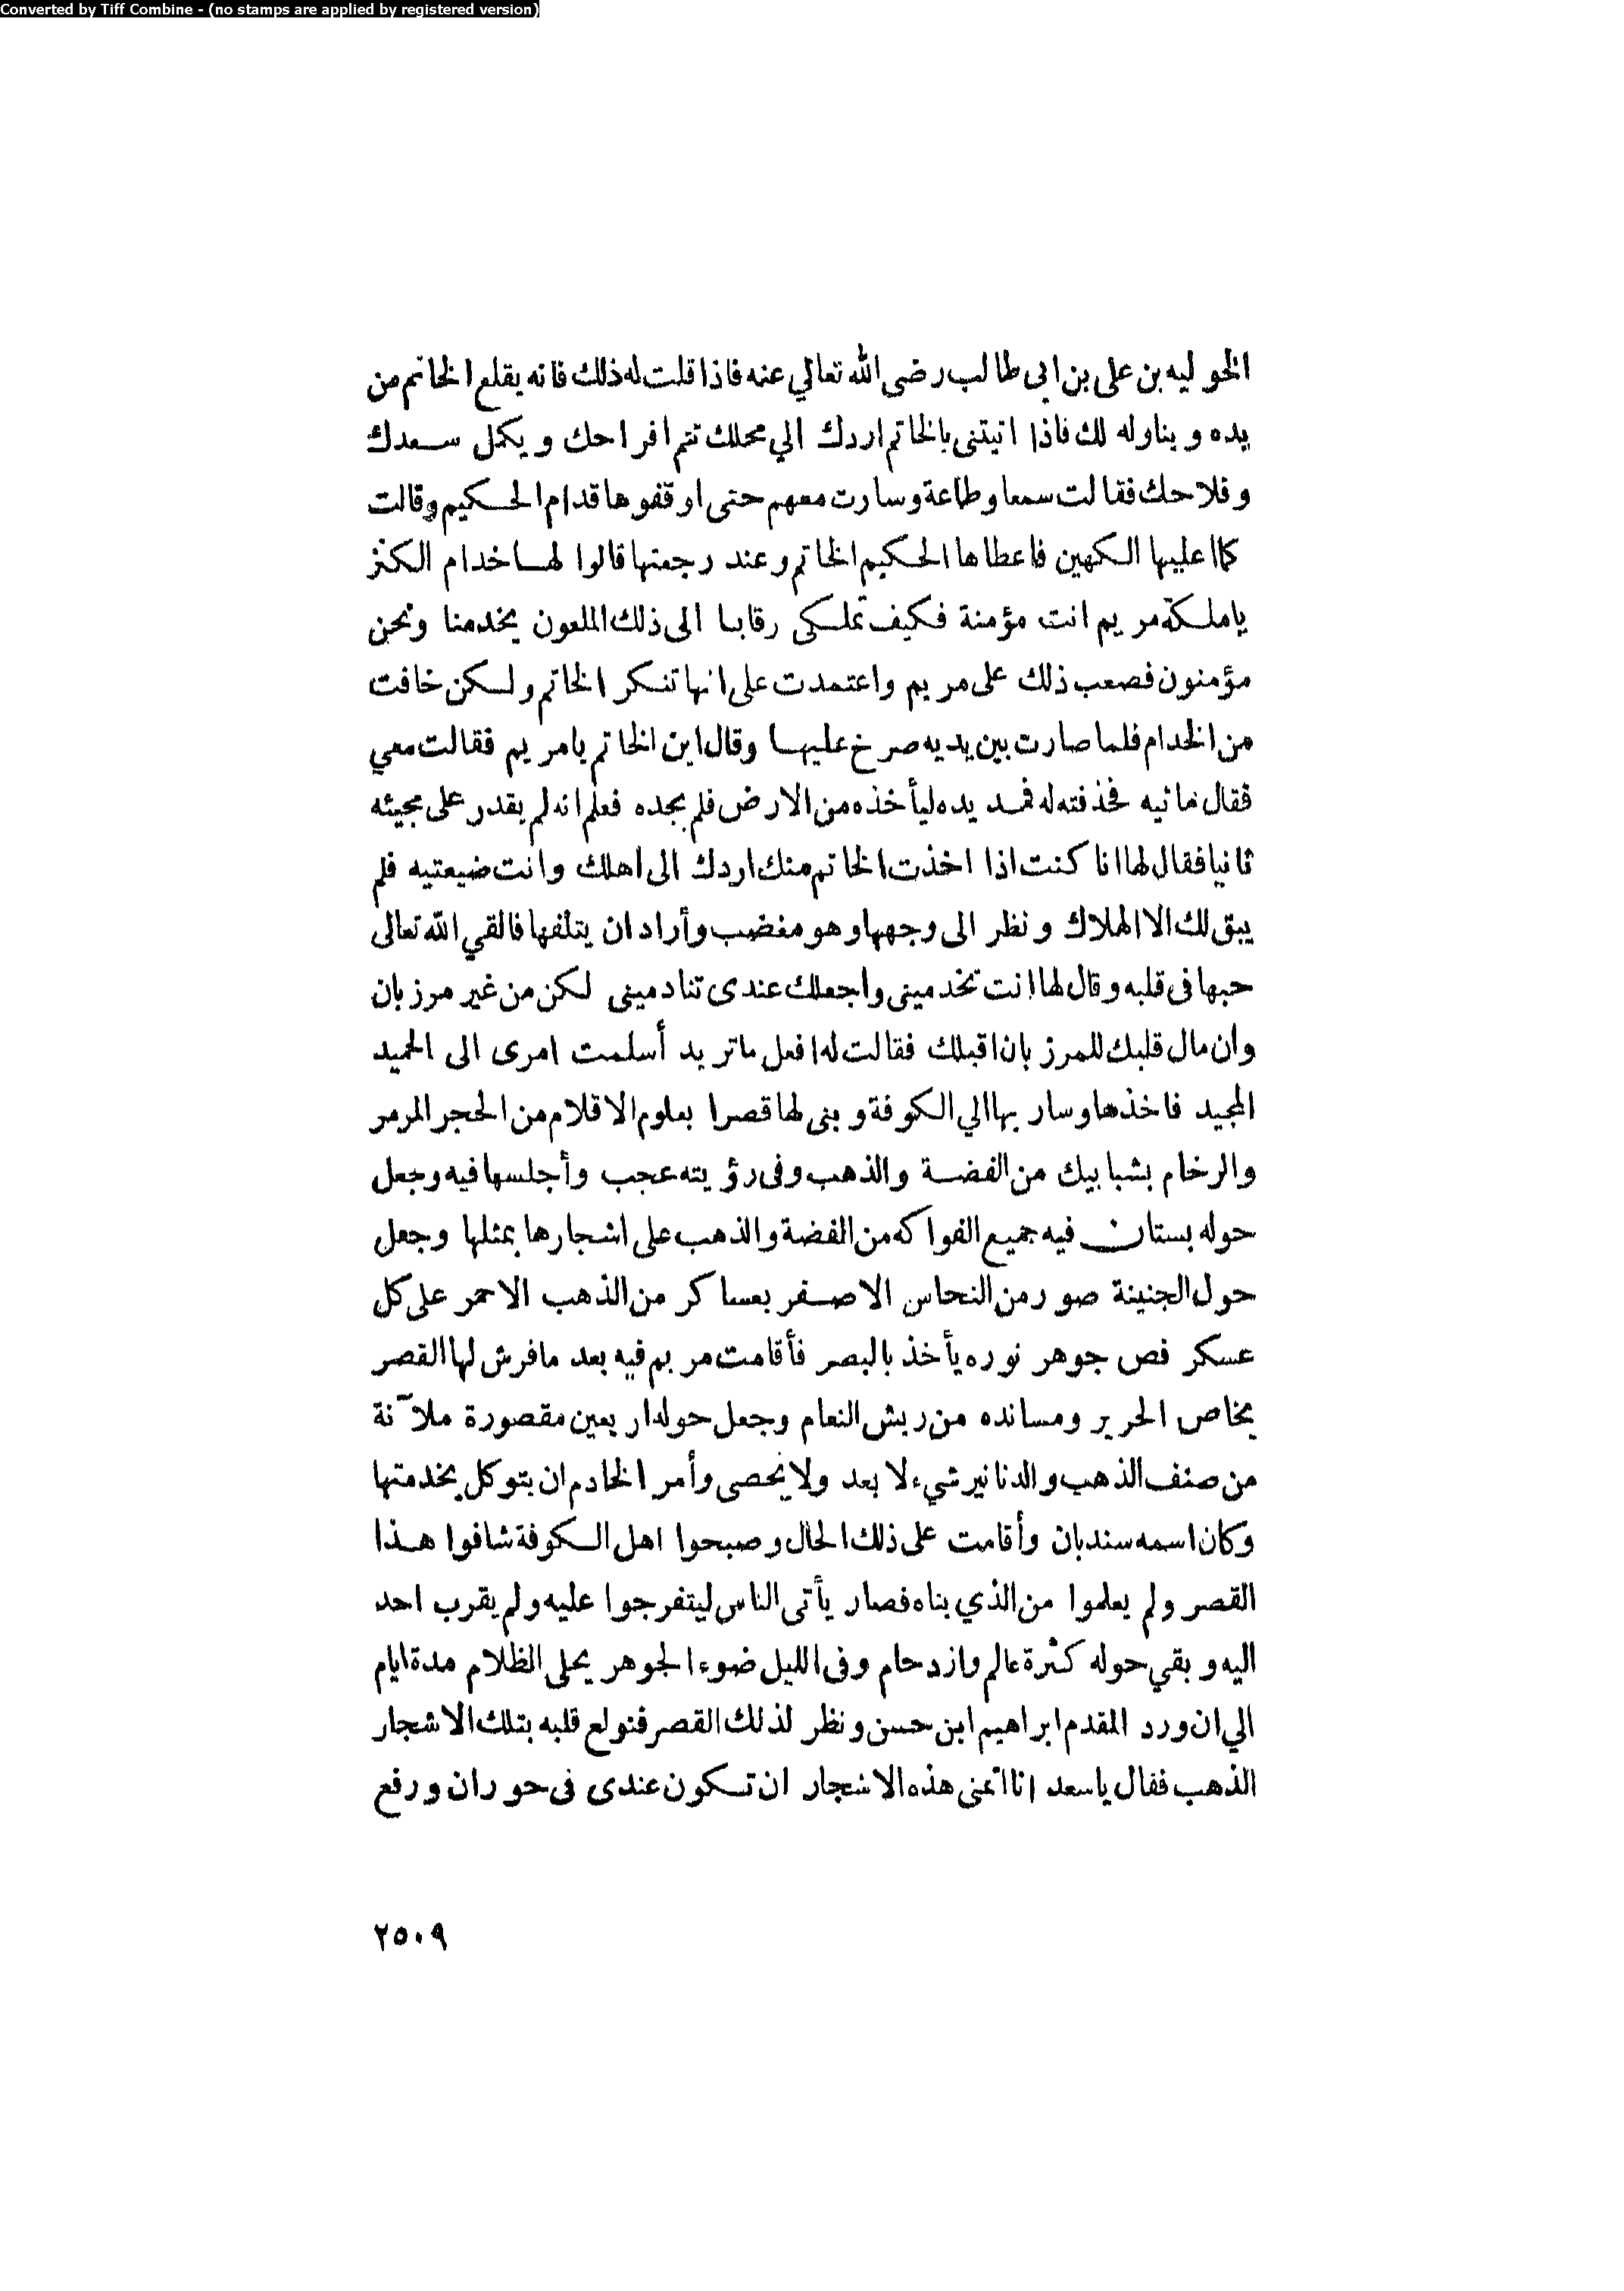 Converted by Tiff Combine - (no stamps are applied by registered version)
الخوليه بن على بن ابى طالب رضى الله تعالي عنه فاذا قلت له ذلك فانه يقلع الخاتم من
يده ويناوله لك فاذا اتيتنى بالخاتم اردك الي محلك تتم افراحك ويكمل سعدك
وفلاحك فقالت سمعا وطاعة وسارت معهم حتى اوقفوها قدام الحكيم وقالت
كما عليها الكهين فاعطاها الحكيم الخاتم وعند رجعتها قالوا لها خدام الكنز
ياملكة مريم انت مؤمنة فكيف تملكى رقابنا الى ذلك الملعون يخدمنا ونحن
مؤمنون فصعب ذلك على مريم واعتمدت على انها تنكر الخاتم ولكن خافت
من الخدام فلما صارت بين يديه صرخ عليها وقال اين الخاتم يامريم فقالت معي
فقال هاتيه فحذفته له فمد يده ليأخذه من الارض فلم يجده فعلم انه لم يقدر على مجيئه
ثانيا فقال لها انا كنت اذا اخذت الخاتم منك اردك الى اهلك وانت ضيعتيه فلم
يبق لك الا الهلاك ونظر الى وجهها وهو مغضب وأراد ان يتلفها فالقي الله تعالى
حبها فى قلبه وقال لها انت تخدمينى واجعلك عندى تنادمينى لكن من غير مرزبان
وان مال قلبك للمرزبان اقبلك فقالت له افعل ماتريد أسلمت امرى الى الحميد
المجيد فاخذها وسار بها الي الكوفة وبنى لها قصرا بعلوم الاقلام من الحجر المرمر
والرخام بشبابيك من الفضة والذهب وفى رؤيته عجب وأجلسها فيه وجعل
حوله بستان فيه جميع الفواكه من الفضة والذهب على اشجارها بمثلها وجعل
حول الجنينة صور من النحاس الاصفر بعساكر من الذهب الاحمر على كل
عسكر فص جوهر نوره يأخذ بالبصر فأقامت مريم فيه بعد مافرش لها القصر
بخاص الحرير ومسانده من ريش النعام وجعل حوله اربعين مقصورة ملآنة
من صنف الذهب والدنانير شيء لا يعد ولا يحصى وأمر الخادم ان يتوكل بخدمتها
وكان اسمه سندبان وأقامت على ذلك الحال وصبحوا اهل الكوفة شافوا هذا
القصر ولم يعلموا من الذي بناه فصار يأتى الناس ليتفرجوا عليه ولم يقرب احد
اليه وبقي حوله كثرة عالم وازدحام وفى الليل ضوء الجوهر يجلى الظلام مدة ايام
الي ان ورد المقدم ابراهيم ابن حسن ونظر لذلك القصر فتولع قلبه بتلك الاشجار
الذهب فقال ياسعد انا اتمنى هذه الاشجار ان تكون عندى فى حوران ورفع
٢٥٠٩